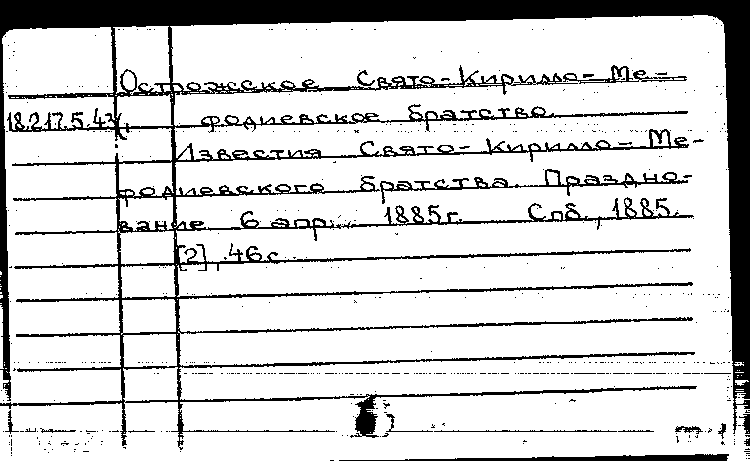 Острожское Свято-Кирилло-Ме-
18.217.5.43 фодиевское братство.
Известия Свято-Кирилло-Ме-
фодиевского братства. Праздно-
вание 6 апр. 1885г. Спб., 1885.
[2], 46с